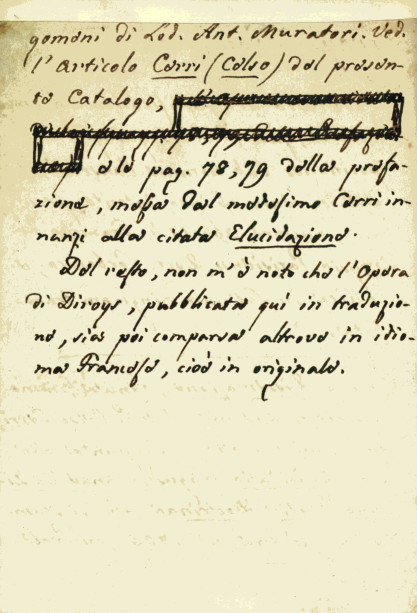 gomeni di Lod. Ant. Muratori. Ved.
l'Articolo Cerri (Celso) del presen-
te Catalogo,
e le pag. 78, 79 della prefa-
zione, messa dal medesimo Cerri in-
nanzi alla citata Elucidazione.
Del resto, non m'è noto che l'Opera
di Diroys, pubblicata quì in traduzio-
ne, sia poi comparsa altrove in idio-
ma Francese, cioè in originale.